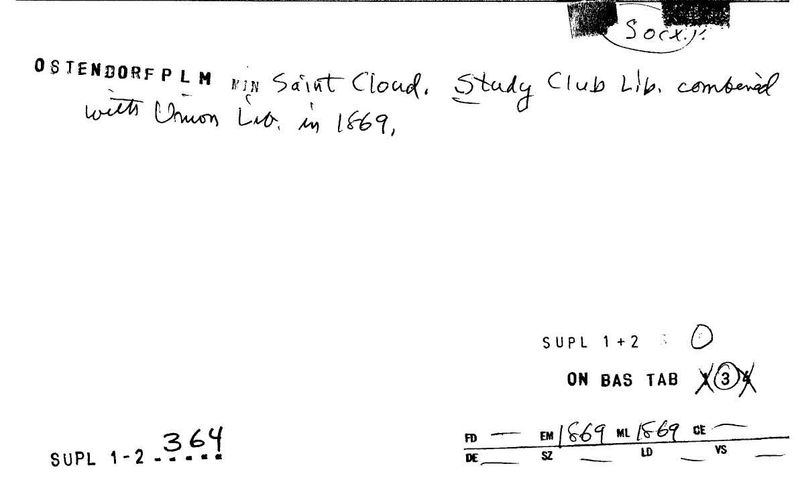 Socx.
OSTENDORFPLM MIN Saint Cloud. Study Club Lib. combined
with Union Lib. in 1869,
SUPL 1+2 : 0
ON BAS TAB 3
SUPL 1-2 364
FD — EM 1869 ML 1869 CE —
DE — SZ — LD — VS —